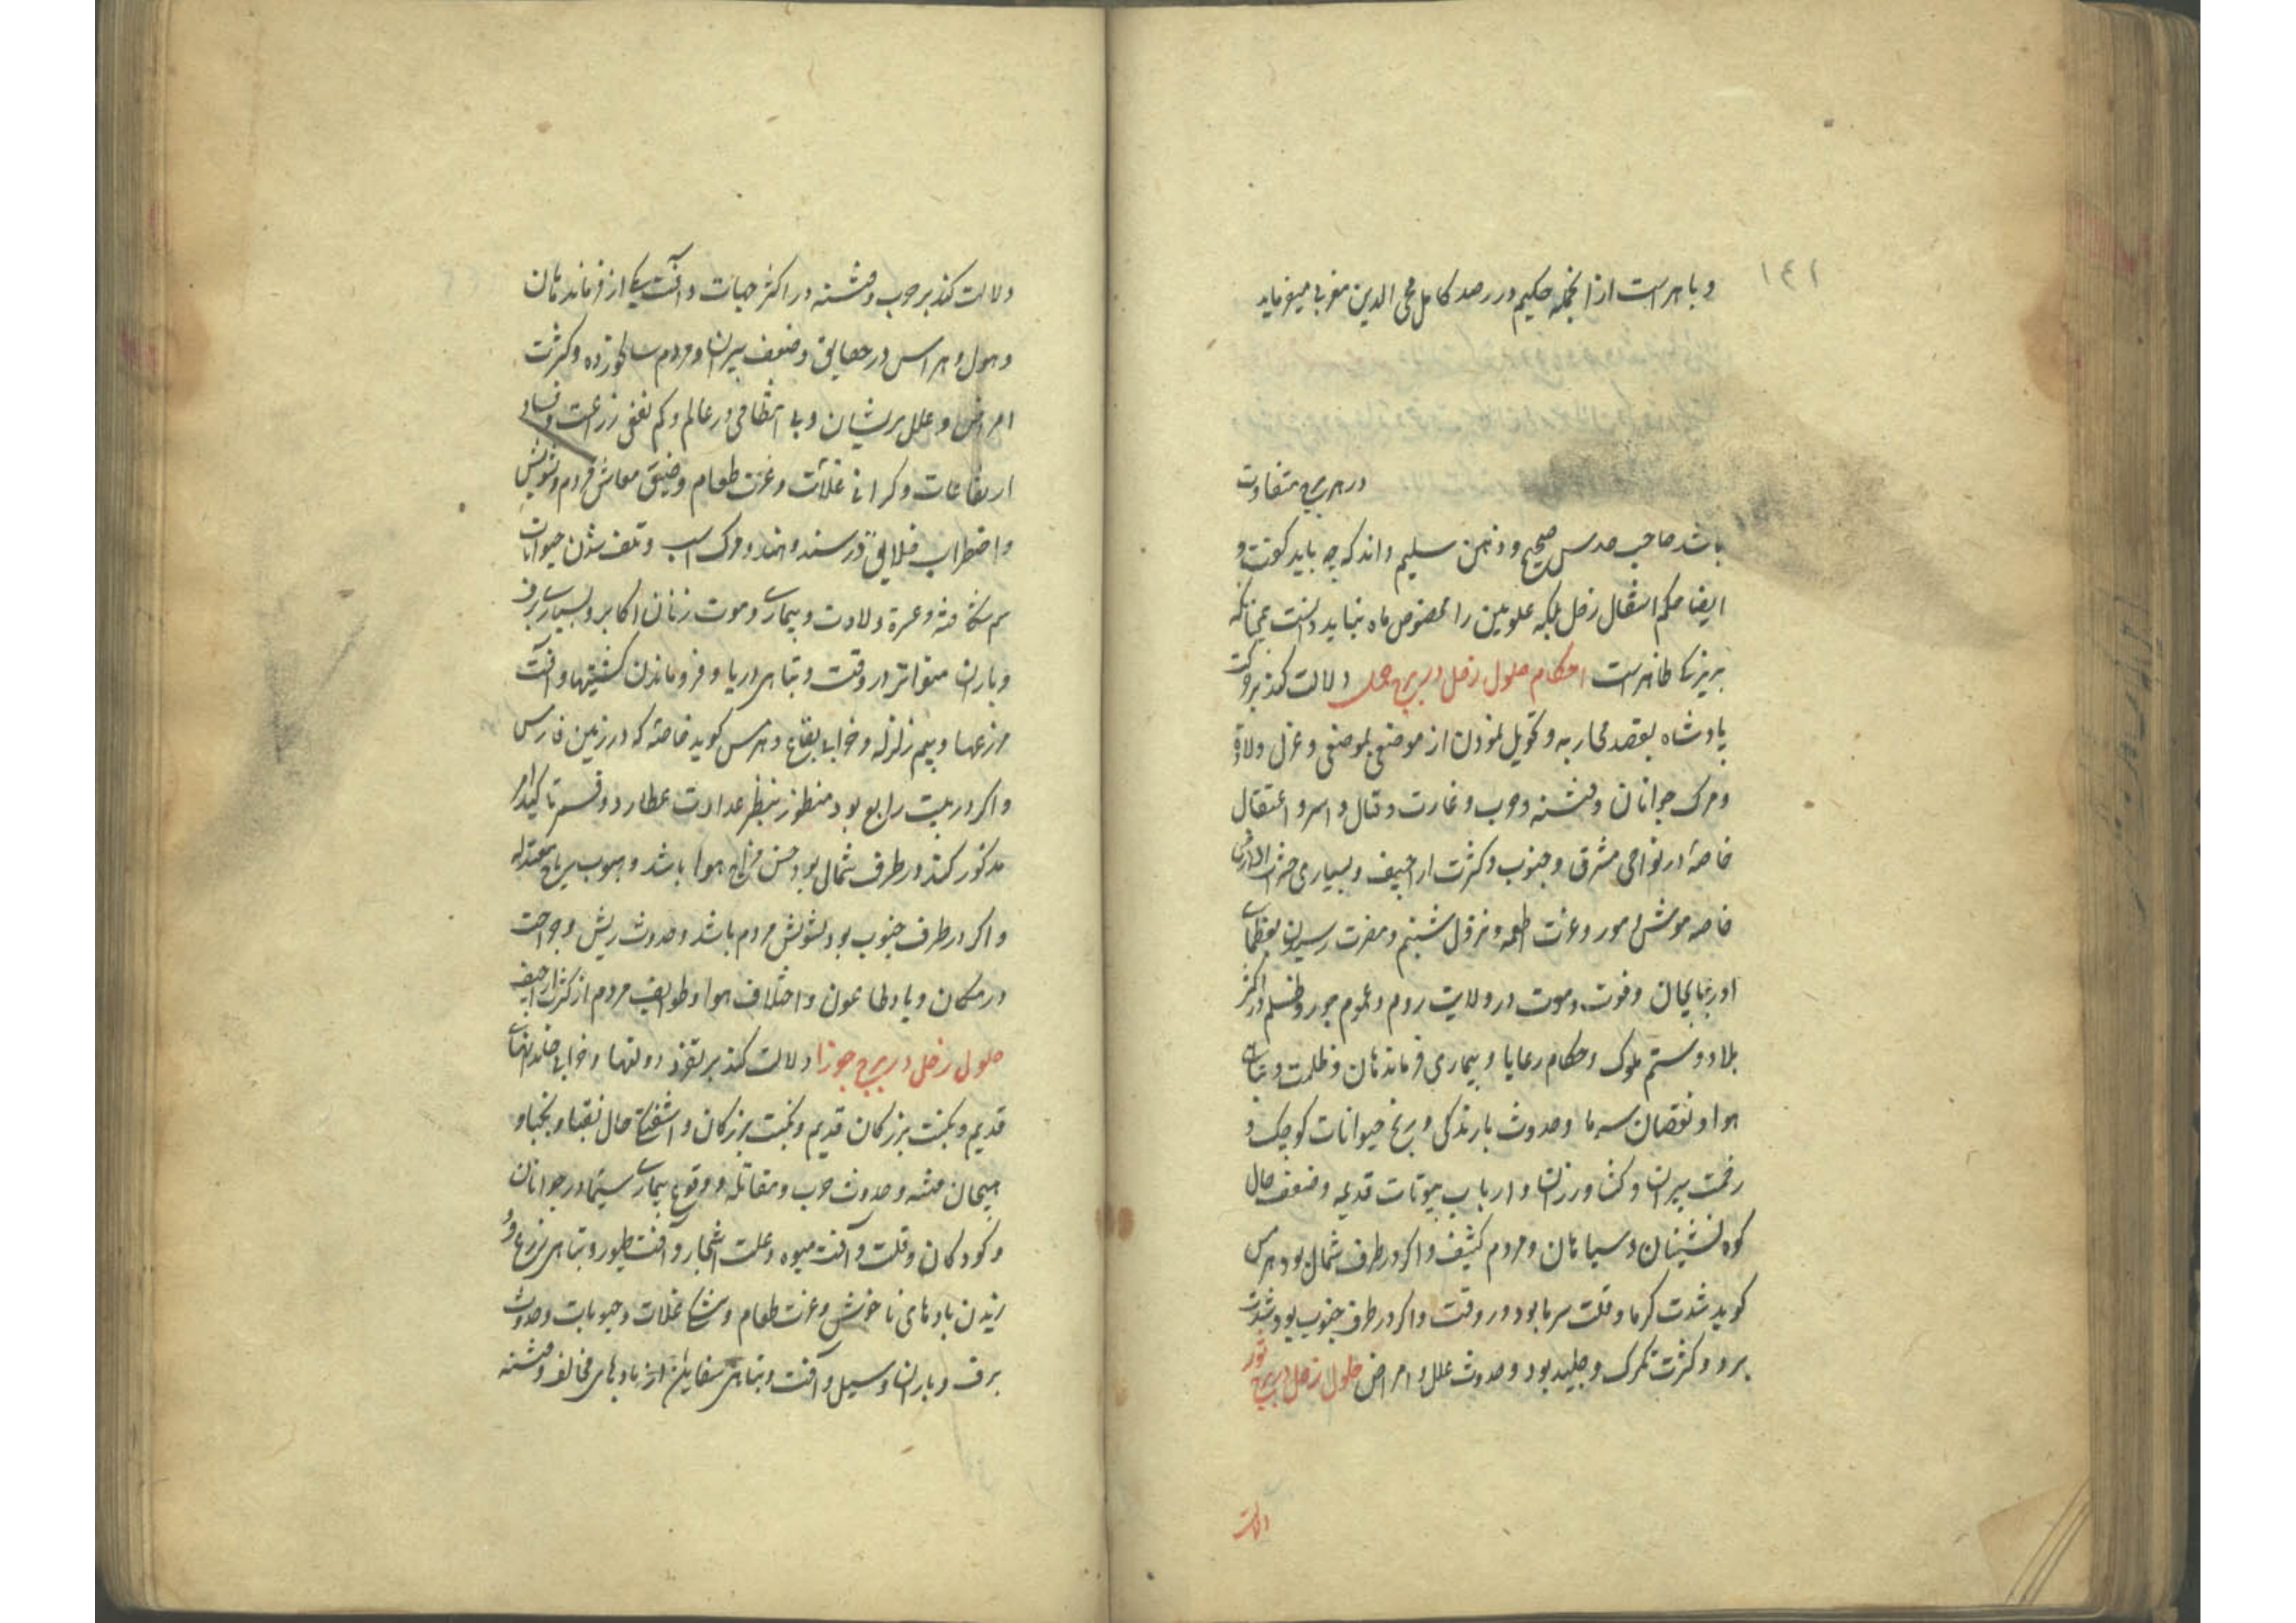 ۱۴۱
و باهر است از انجمله حکیم در رصد کامل محی الدین مغربی میفرماید
در هر برج متفاوت
باشد صاحب حدس صحیح و ذهن سلیم داند که چه باید گفت و
ایضا حکم انتقال زحل بلکه علویین را مخصوص ماه نباید دانست چنانکه
ظاهر است احکام حلول زحل در برج حمل دلالت کند بر حرکت
پادشاه بقصد محاربه و تحویل نمودن از موضعی بموضعی و عزل ولاة
و مرک جوانان و فتنه و حرب و غارت و قتال و اسر و اعتقال
خاصة در نواحی مشرق و جنوب و کثرت اراجیف و بسیاری حشرات الارض
خاصه موش و مور و عزت اطعمه و نزول شبنم و مضرت رسیدن بعظمای
اذربایجان و فوت و موت در ولایت روم و عموم جور و ظلم در اکثر
بلاد و ستم ملوک و حکام رعایا و بیماری فرماندهان و ظلمت و تباهی
هوا و نقصان سرما و حدوث بارندکی و رنج حیوانات کوچک و
زحمت پیران و کشاورزان و ارباب بیوتات قدیمه و ضعف حال
کوه نشینان و سیاهان و مردم کثیف و اکر در طرف شمال بود هرمس
کوید شدت کرما و قلت سرما بود در وقت و اکر در طرف جنوب بود شدت
برد و کثرت تکرک و جلید بود و حدوث علل و امراض حلول زحل در برج ثور
دلالت
دلالت کند بر حرب و فتنه در اکثر جهات و آفت یکی از فرماندهان
و هول و هراس در خلایق و ضعف پیران و مردم سالخورده و کثرت
امراض و علل پریشان و بی انتظامی در عالم و کم نفعی زراعت و فساد
ارتفاعات و کرانی غلات و عزت طعام و ضیق معاش مردم و تشویش
و اضطراب خلایق در سند و هند و مرک اسب و تلف شدن حیوانات
سم شکافته و عسرة ولادت و بیماری و موت زنان اکابر و بسیاری برف
و باران متواتر در وقت و تباهی دریا و فرو ماندن کشتیها و آفت
مزرعها و بیم زلزله و خرابی بقاع و هرمس کوید خاصه که در زمین فارس
و اکر در بیت رابع بود منظور بنظر عداوت عطارد و قمر تاکید امر
مذکور کند در طرف شمال بود حسن مزاج هوا باشد و هبوب ریاح معتدله
و اکر در طرف جنوب بود تشویش مردم باشد و حدوث ریش و جراحت
در مکان و باد طاعون و اختلاف هوا و طوایف مردم از کثرت اراجیف
حلول زحل در برج جوزا دلالت کند بر دولتها و خرابی خاندانهای
قدیم و نکبت بزرکان قدیم و نکبت بزرکان و اشفتکی حال نقبا و نجبا و
هیجان فتنه و حدوث حرب و مقاتله و وقوع بیماری سیما در جوانان
و کودکان و قلت و آفت میوه و علت اشجار و آفت طیور و تباهی زرع و و
زیدن بادهای ناخوش و عزت طعام و غلات و حبوبات و حدوث
برف و باران و سیل و آفت و تباهی سفاین از بادهای مخالف و فتنه